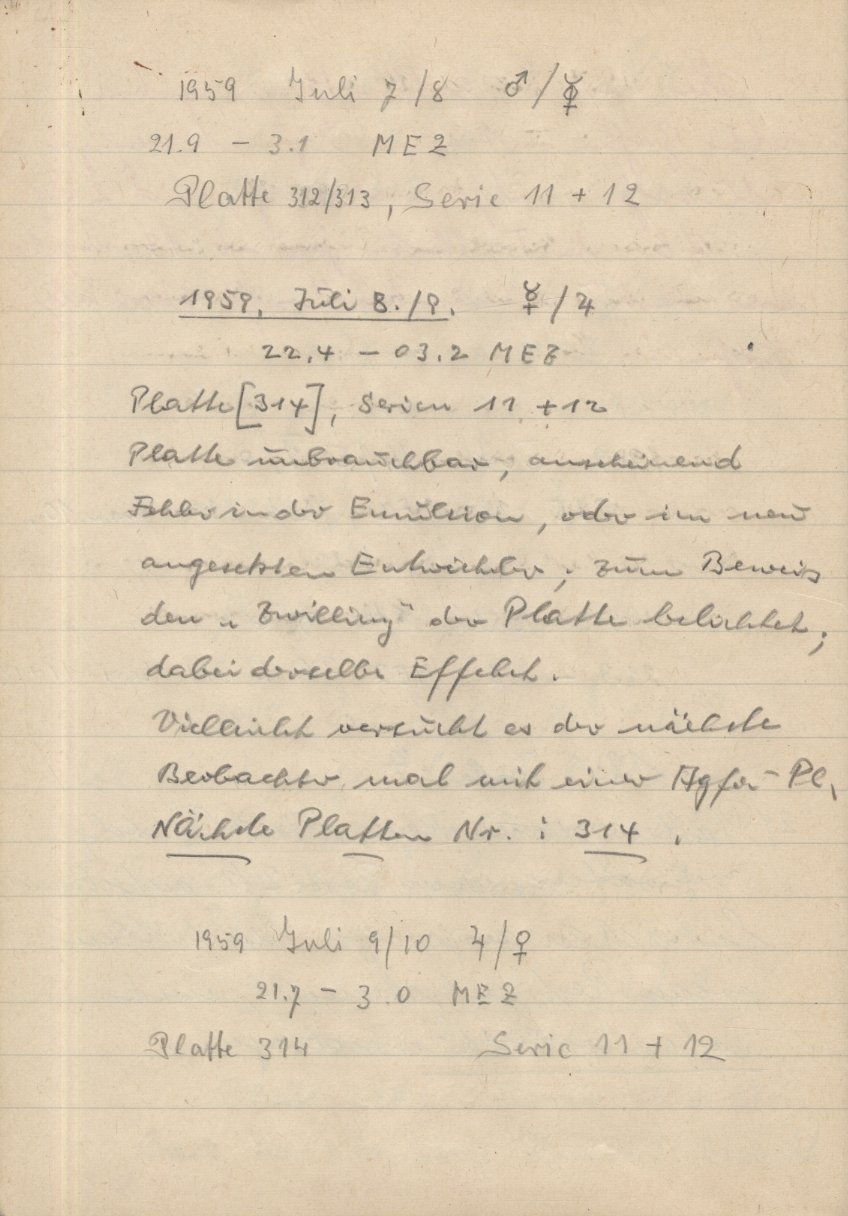 1959 Juli 7/8 ♂/☿
21.9 – 3.1 MEZ
Platte 312/313, Serie 11 + 12
1959, Juli 8./9. ☿/♃
22.4 – 03.2 MEZ
Platte [314], Serien 11 + 12
Platte unbrauchbar, anscheinend
Fehler in der Emulsion, oder im neu
angesetzten Entwickler; zum Beweis
den „Zwilling“ der Platte belichtet;
dabei derselbe Effekt.
Vielleicht versucht es der nächste
Beobachter mal mit einer Agfa-Pl.
Nächste Platten Nr.: 314.
1959 Juli 9/10 ♃/♀
21.7 – 3.0 MEZ
Platte 314 Serie 11 + 12